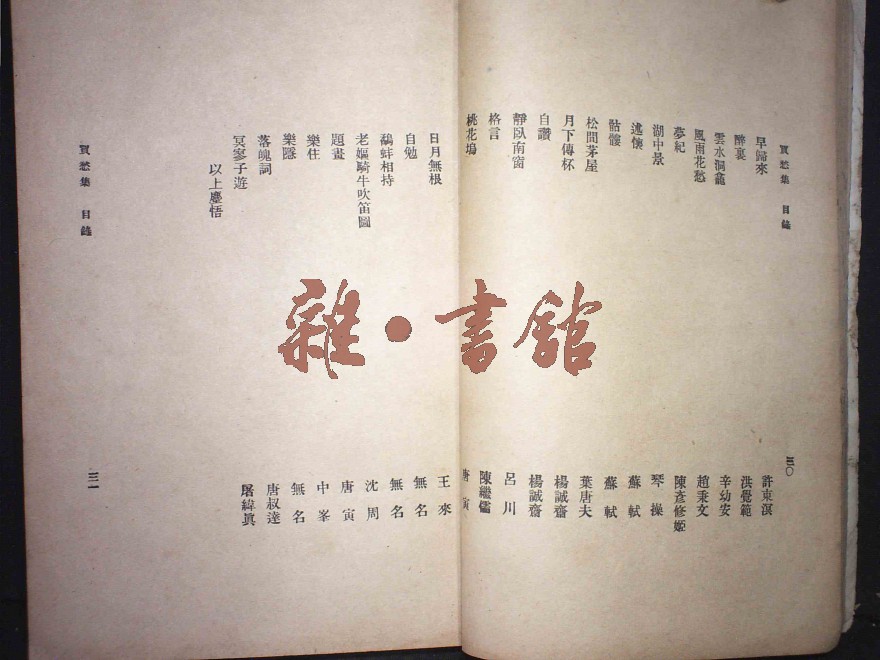 買愁集 目錄
三〇
早歸來 許東溟
醉裏 洪覺範
雲水洞龕 辛幼安
風雨花愁 趙秉文
夢紀 陳彥修姬
湖中景 琴操
述懷 蘇軾
骷髏 蘇軾
松間茅屋 葉唐夫
月下傳杯 楊誠齋
自讚 楊誠齋
靜臥南窗 呂川
格言 陳繼儒
桃花塢 唐寅
日月無根 王來
自勉 無名
鷸蚌相持 無名
老嫗騎牛吹笛圖 沈周
題畫 唐寅
樂住 中峯
樂隱 無名
落魄詞 唐叔達
冥寥子遊 屠緯真
以上塵悟
買愁集 目錄
三一
雜·書館